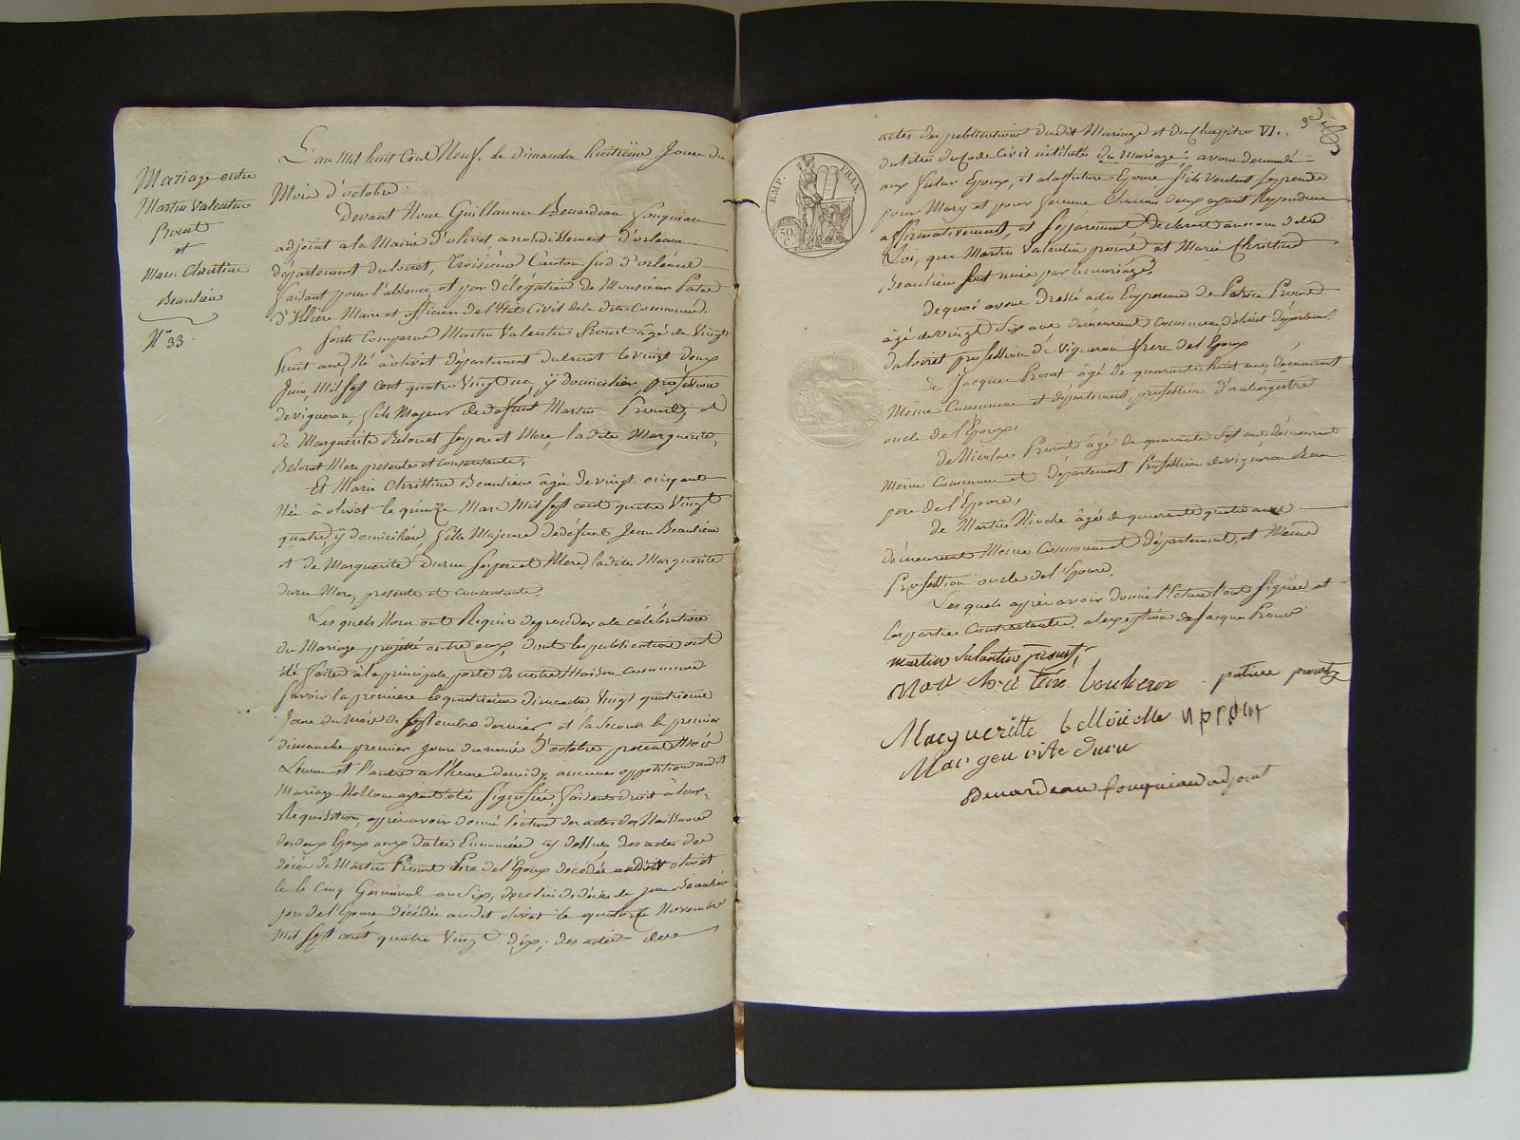 Mariage entre
Martin Valentin
Prout
et
Marie Christine
Beaulieu
N° 33
L'an mil huit cent Neuf, le dimanche huitième Jour du
Mois d'octobre
Devant Nous Guillaume Benardeau fouquiau
adjoint a la Mairie d'olivet arrondissement d'orleans
département du loiret, troisième Canton Sud d'orléans
faisant pour l'absence, et par délégation de Monsieur
Maire et officier de l'Etat Civil de la dite Commune
Sont Comparus Martin Valentin Prout âgé de Vingt
huit ans, Né à olivet département du loiret le vingt deux
Juin Mil sept cent quatre Vingt un, y domicilié, profession
de vigneron, fils Majeur de defunt Martin Prout, et
de Marguerite Belouet ses pere et Mere, la dite Marguerite
Belouet Mere presente et consentante,
Et Marie Christine Beaulieu âgée de vingt cinq ans
Née à olivet le quinze Mars Mil sept cent quatre Vingt
quatre, y domiciliée, fille Majeure de defunt Jean Beaulieu
et de Marguerite duru ses pere et Mere, la dite Marguerite
duru Mere, presente et consentante.
Lesquels Nous ont Requis de proceder a la célébration
du Mariage projetté entre eux, dont les publications ont
été faites à la principale porte de notre Maison commune
Savoir la premiere le dimanche Vingt quatrieme
Jour du Mois de Septembre dernier et la Seconde le premier
dimanche premier Jour du mois d'octobre present Mois
L'une et l'autre a l'heure de midy aucunes oppositions audit
Mariage Ne Nous ayant été Signifiée, faisant droit à leur
Requisition, après avoir donné lecture des actes de Naissance
des deux Epoux aux dates Enoncées cy dessus, des actes de
décès de Martin Prout Pere de l'Epoux décédé audit olivet
le cinq Germinal an Six, de celui de décès de Jean Beaulieu
pere de l'Epouse décédé audit olivet le quatorze Novembre
Mil sept cent quatre Vingt dix, des actes des
3e
EMP. FRAN.
50 C
actes de publications dudit Mariage et du Chapitre VI.
du titre du Code Civil intitulé du Mariage, avons demandé
aux futur Epoux, et a la future Epouse S'ils Veulent Se prendre
pour Mary et pour femme Chacun deux ayant Repondu
affirmativement, et Séparement, declarons au nom de la
Loi, que Martin Valentin prout et Marie Christine
Beaulieu Sont unis par le mariage
De quoi avons Dressé acte En presence de Patrice Prout
âgé de vingt Six ans demeurant Commune d'olivet departement
du loiret profession de Vigneron frere de l'Epoux
de Jacque Prout âgé de quarante huit ans, demeurant
Même Commune et département, profession
oncle de l'Epoux,
de Nicolas Prout âgé de quarante Sept ans demeurant
Même Commune et département Profession de vigneron beau
pere de l'Epouse,
de Martin âgé de quarante quatre ans
demeurant Même Commune et département, et Même
Profession oncle de l'Epouse,
Lesquels après avoir donné lecture l'ont Signée et
les parties Contractantes, a l'exception de Jacque Prout
martin valantin proust
Mari christine boulieux patrice prout
Margueritte belloiielle n prout
Margeurite duru
Benardeau fouquiau adjoint